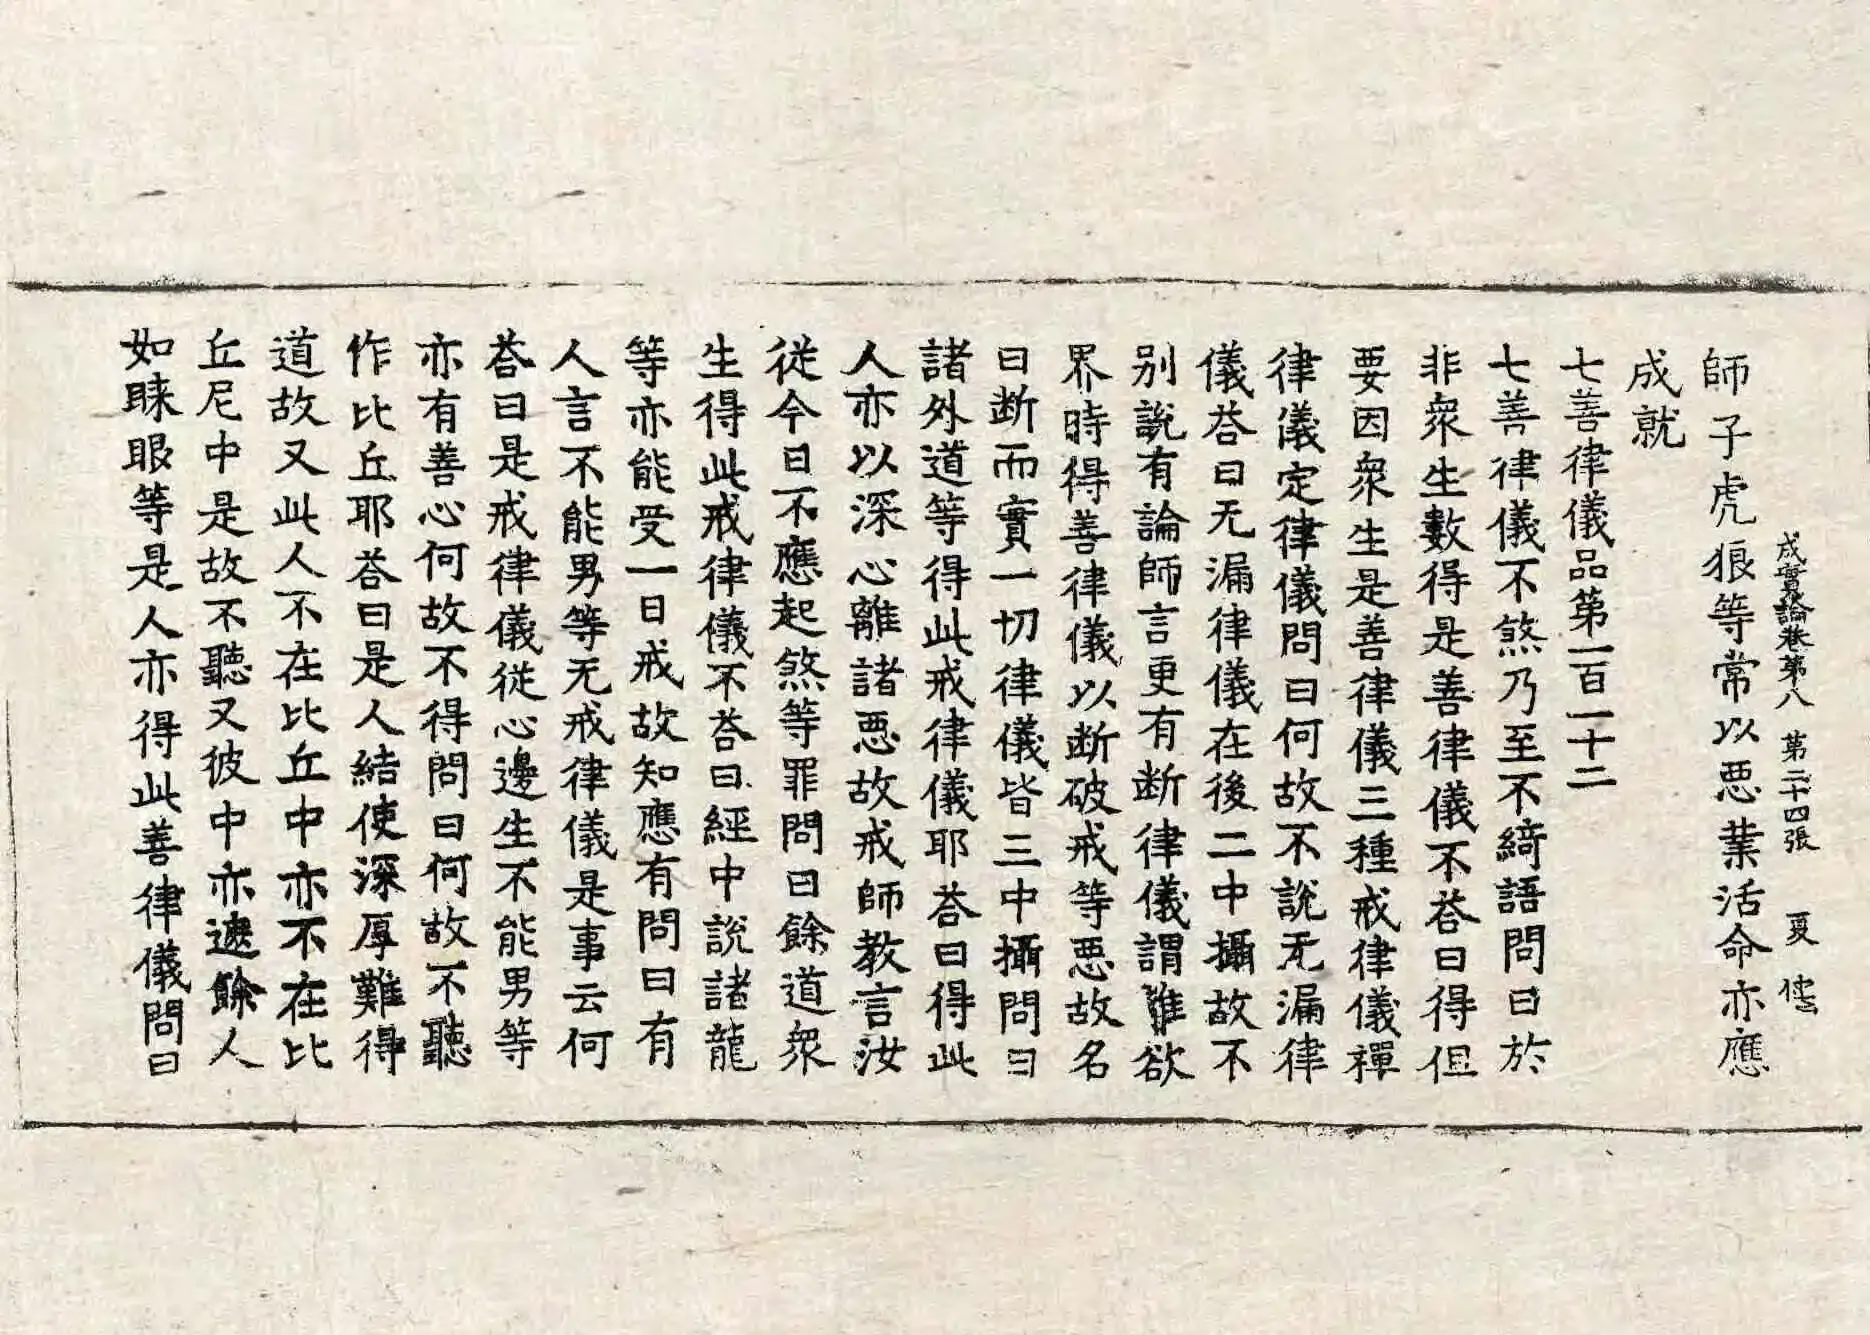 成實論卷第八 第二十四張 夏
師子虎狼等常以惡業活命亦應
成就
七善律儀品第一百一十二
七善律儀不煞乃至不綺語問曰於
非衆生數得是善律儀不荅曰得但
要因衆生是善律儀三種戒律儀禪
律儀定律儀問曰何故不說无漏律
儀荅曰无漏律儀在後二中攝故不
别說有論師言更有断律儀謂離欲
界時得善律儀以断破戒等惡故名
曰断而實一切律儀皆三中攝問曰
諸外道等得此戒律儀耶荅曰得此
人亦以深心離諸惡故戒師教言汝
從今日不應起煞等罪問曰餘道衆
生得此戒律儀不荅曰經中說諸龍
等亦能受一日戒故知應有問曰有
人言不能男等无戒律儀是事云何
荅曰是戒律儀從心邊生不能男等
亦有善心何故不得問曰何故不聽
作比丘耶荅曰是人結使深厚難得
道故又此人不在比丘中亦不在比
丘尼中是故不聽又彼中亦遮餘人
如睞眼等是人亦得此善律儀問曰